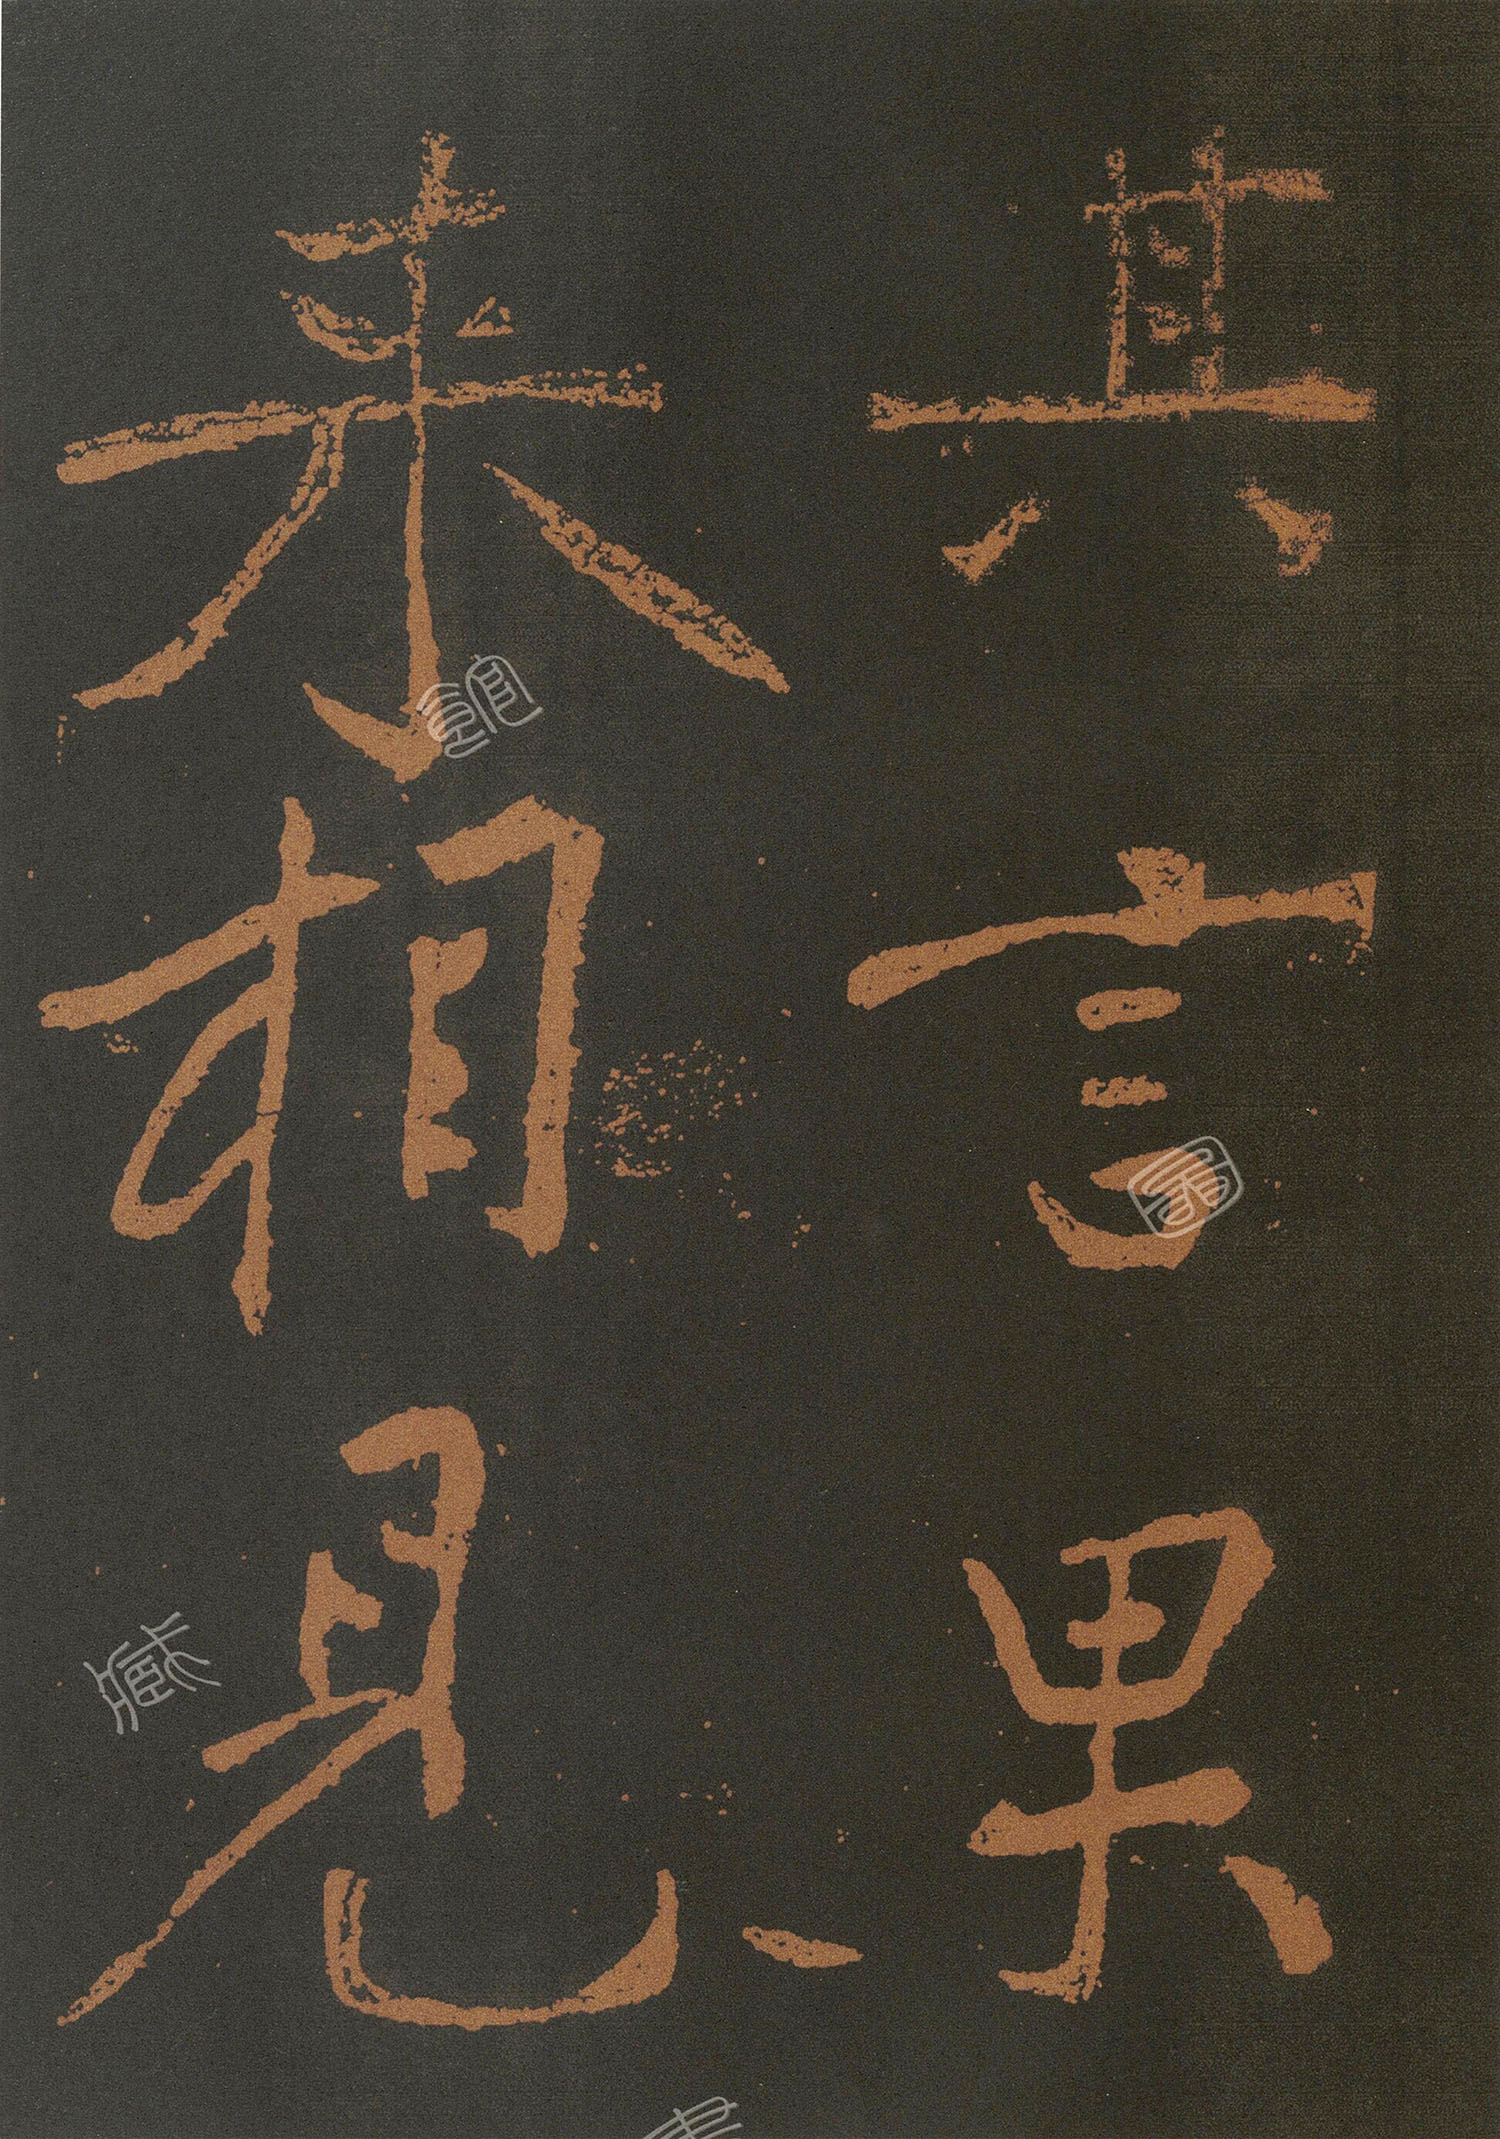 其言果
来相見